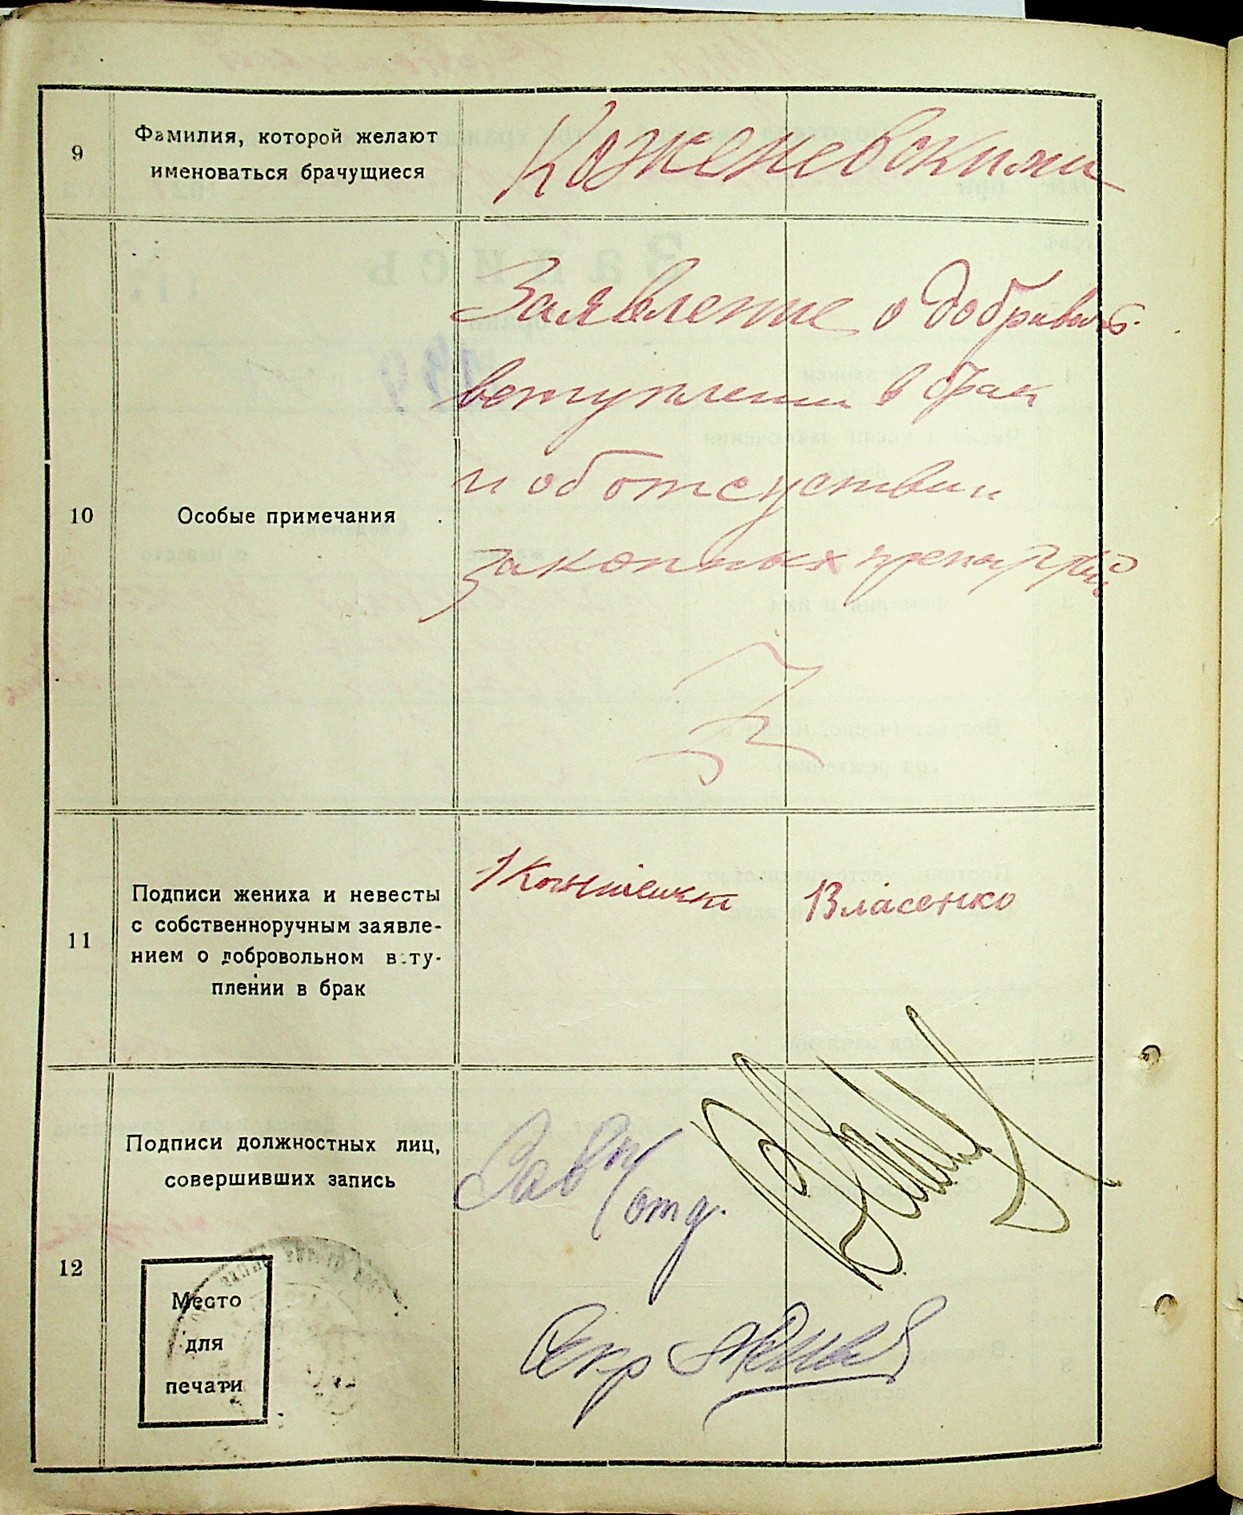 9
Фамилия, которой желают
именоваться брачущиеся
Коженевскими
10
Особые примечания
Заявление о добравольн.
вступлении в брак
и об отсуствии
законных препятствий
11
Подписи жениха и невесты
с собственноручным заявле-
нием о добровольном всту-
плении в брак
Власенко
12
Подписи должностных лиц,
совершивших запись
Зав п/отд.
Секр
Место
для
печати